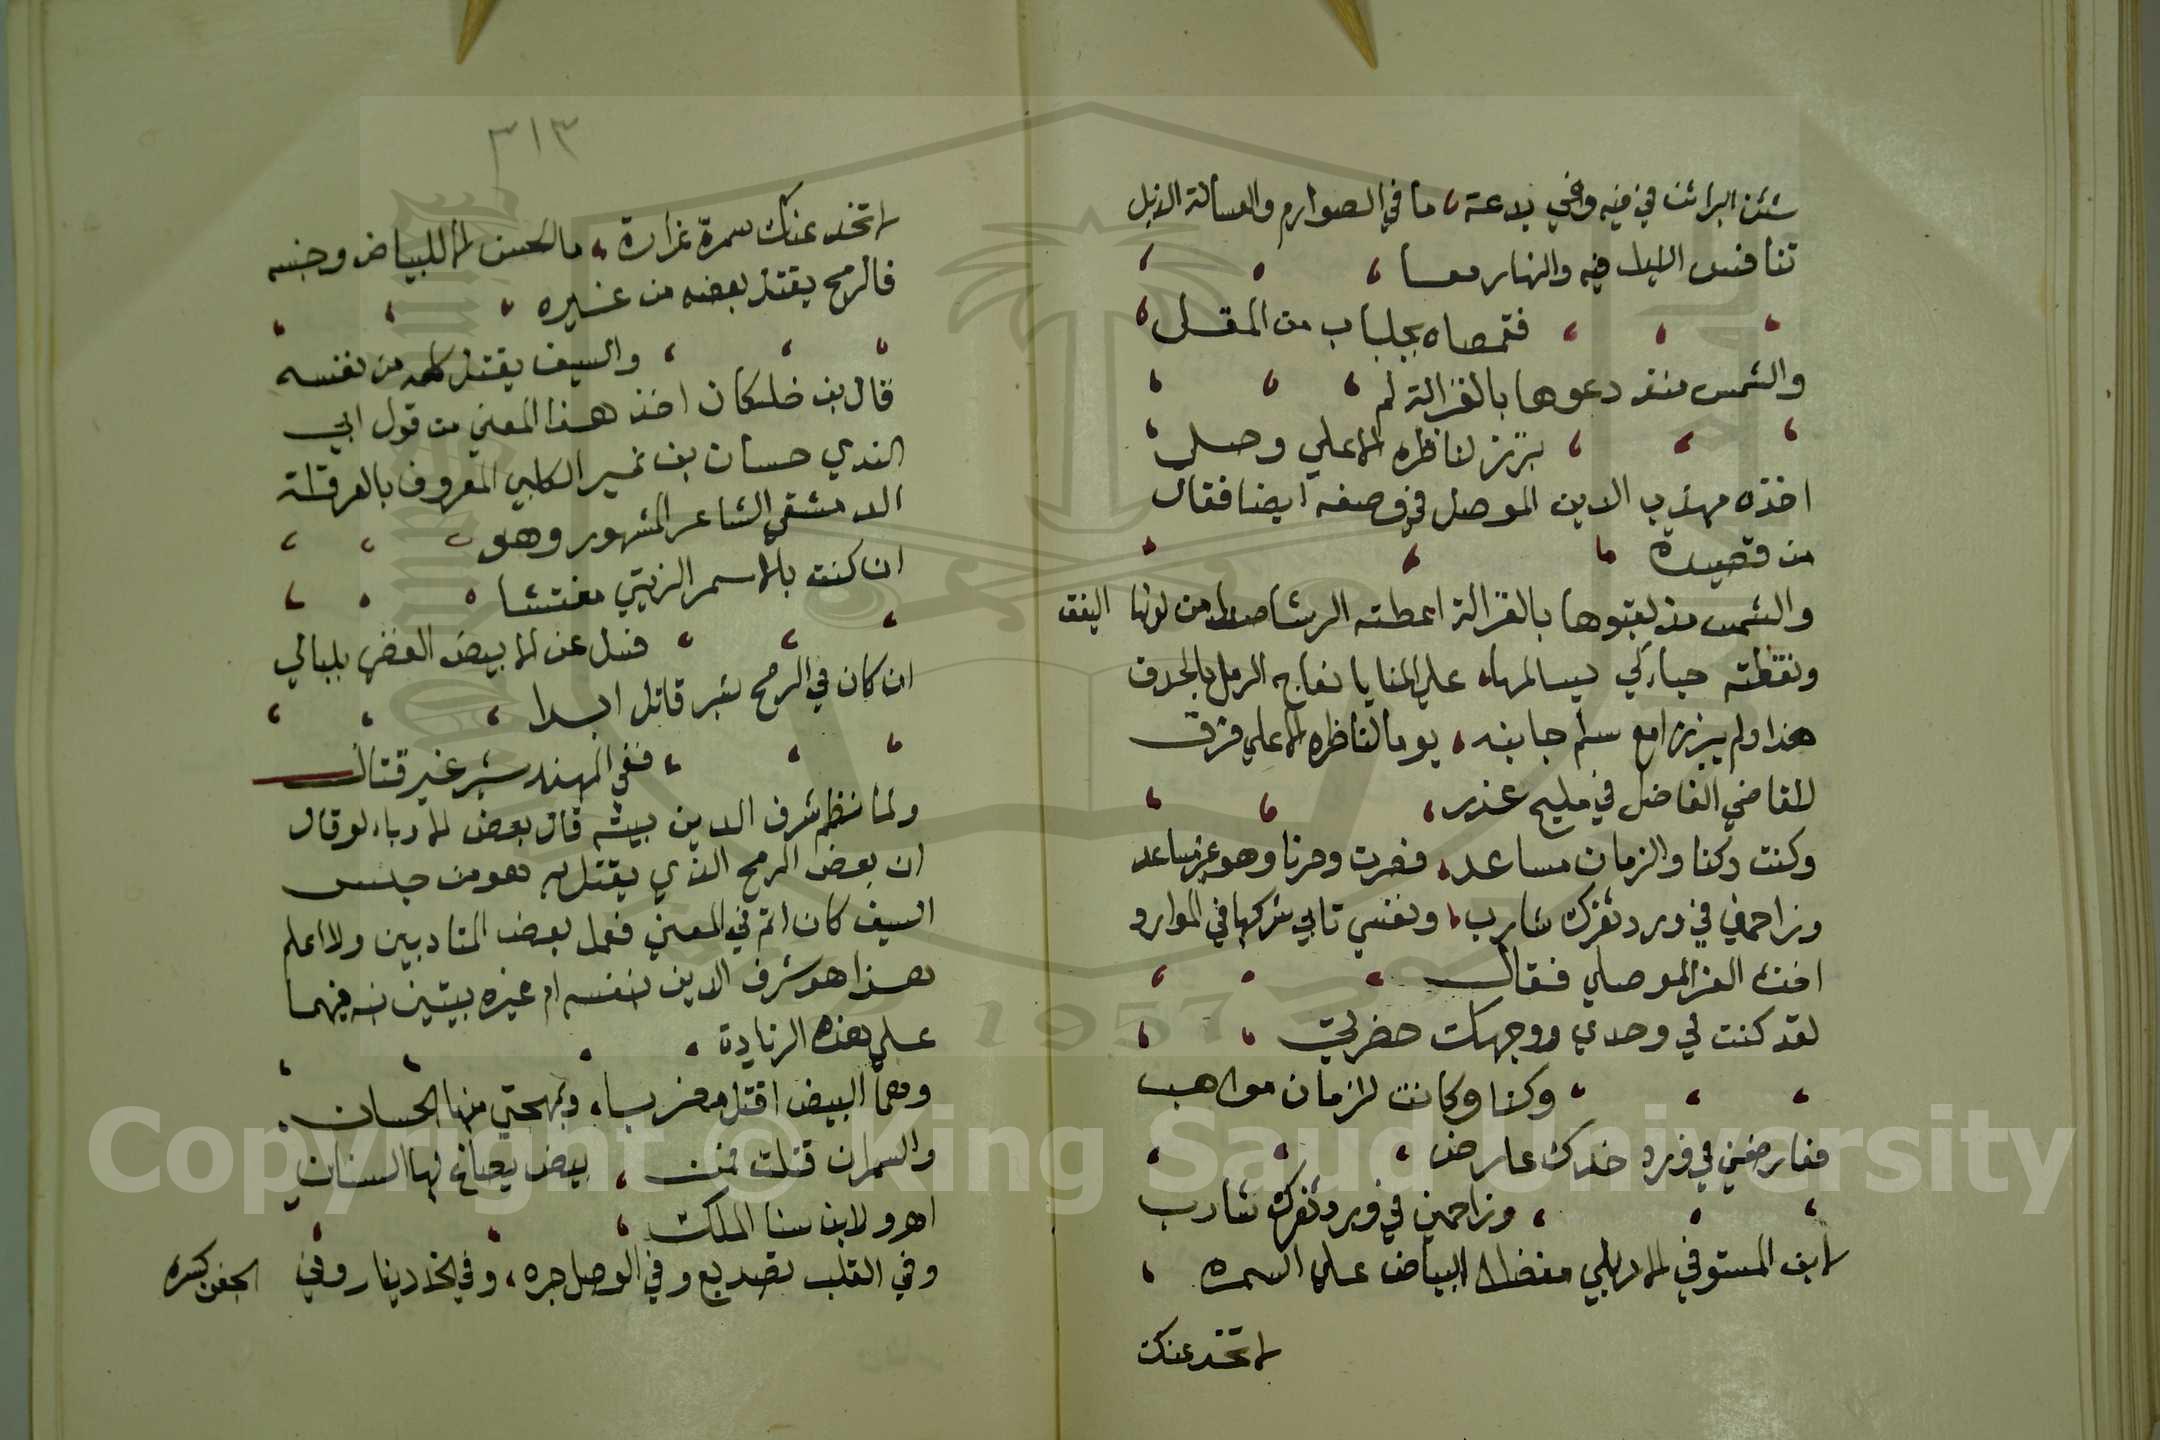 شثن البراثن في فيه وفي يدعة ، ما في الصوارم والعسالة الذبل
تنافس الليل فيه والنهار معا ،
فقمصاه بجلباب من المقل
والشمس منذ دعوها بالغزالة لم ،
تبرز لناظره الا علي وجل
اخذه مهذب الدين الموصلي في وصفه ايضا فقال
من قصيدة
والشمس مذ لقبوها بالغزالة اعطته الرشا من لونها اليقق
ونقطته حباء كي يسالمها ، علي المنايا نعاج الرمل بالحدق
هذا ولم يبرزا مع سلم جانبه ، يوما لناظره الا علي فرق
للقاضي الفاضل في مليح عذر ،
وكنت وكنا والزمان مساعد ، فصرت وصرنا وهو غير مساعد
وزاحمني في ورد ثغرك شارب ، ونفسي تابي شركها في الموارد
اخذه العز الموصلي فقال
لقد كنت لي وحدي ووجهك حضرتي
وكنا وكانت للزمان مواهب
فعارضني في ورد خدك عارض ،
وزاحمني في ورد ثغرك شارب
لابن المستوفي الاربلي مفضلا البياض علي السمره ،
لا تخدعنك
٣١٣
لا تخدعنك سمرة غرارة ، ما الحسن الا للبياض وجنسه
فالرمح يقتل بعضه من غيره
والسيف يقتل كله من نفسه
قال بن خلكان اخذ هذا المعني من قول ابي
الندي حسان بن نمير الكلبي المعروف بالعرقلة
الدمشقي الشاعر المشهور وهو
ان كنت بالاسمر الزيتي مفتتنا
فسل عن الابيض الفضي بلبالي
ان كان في الرمح شبر قاتل ابدا ،
ففي المهند شبر غير قتال
ولما نظم شرف الدين بيته قال بعض الادباء لو قال
ان بعض الرمح الذي يقتل به هو من جنس
السيف كان اتم في المعني فعمل بعض المتادبين ولا اعلم
هذا هو شرف الدين نفسه ام غيره بيتين فيهما
علي هذه الزيادة ،
البيض اقتل مضربا ، وبمهجتي منها الحسان
والسمر ان قتلت فمن ، بيض يصاغ لها السنان
اهـ ولابن سنا الملك
وفي القلب تصديع وفي الوصل جبره ، وفي الخد دينار وفي الجفن كسره